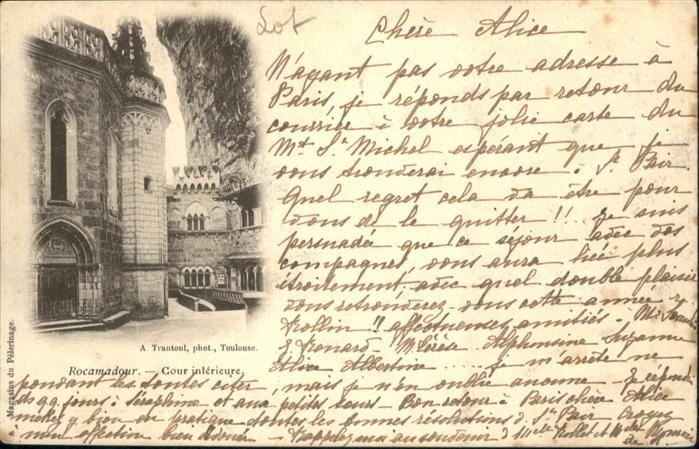 Lot
Chère Alice
N'ayant pas votre adresse à
Paris, je réponds par retour du
courrier à votre jolie carte du
Mt St Michel espérant que je
vous trouverai encore à St Pair.
Quel regret cela va être pour
vous de le quitter !! Je suis
persuadée que ce séjour avec vos
compagnes, vous aura liée plus
étroitement, avec quel double plaisir
vous retrouverez vous cette année
Rollin !! affectueuses amitiés.
Renard Alphonsine Suzanne
Alice Albertine ..... je m'arrête ne
pouvant les toutes citer, mais je n'en oublie aucune - Je réponds
Séraphine et aux petites sœurs - Bon retour à Paris chère Alice
mettez y bien en pratique toutes les bonnes résolutions de St Pair Croyez
à mon affection bien dévouée - Rappelez moi au souvenir de Melle
A Trantoul, phot., Toulouse.
Rocamadour. — Cour intérieure.
Magasins du Pèlerinage.